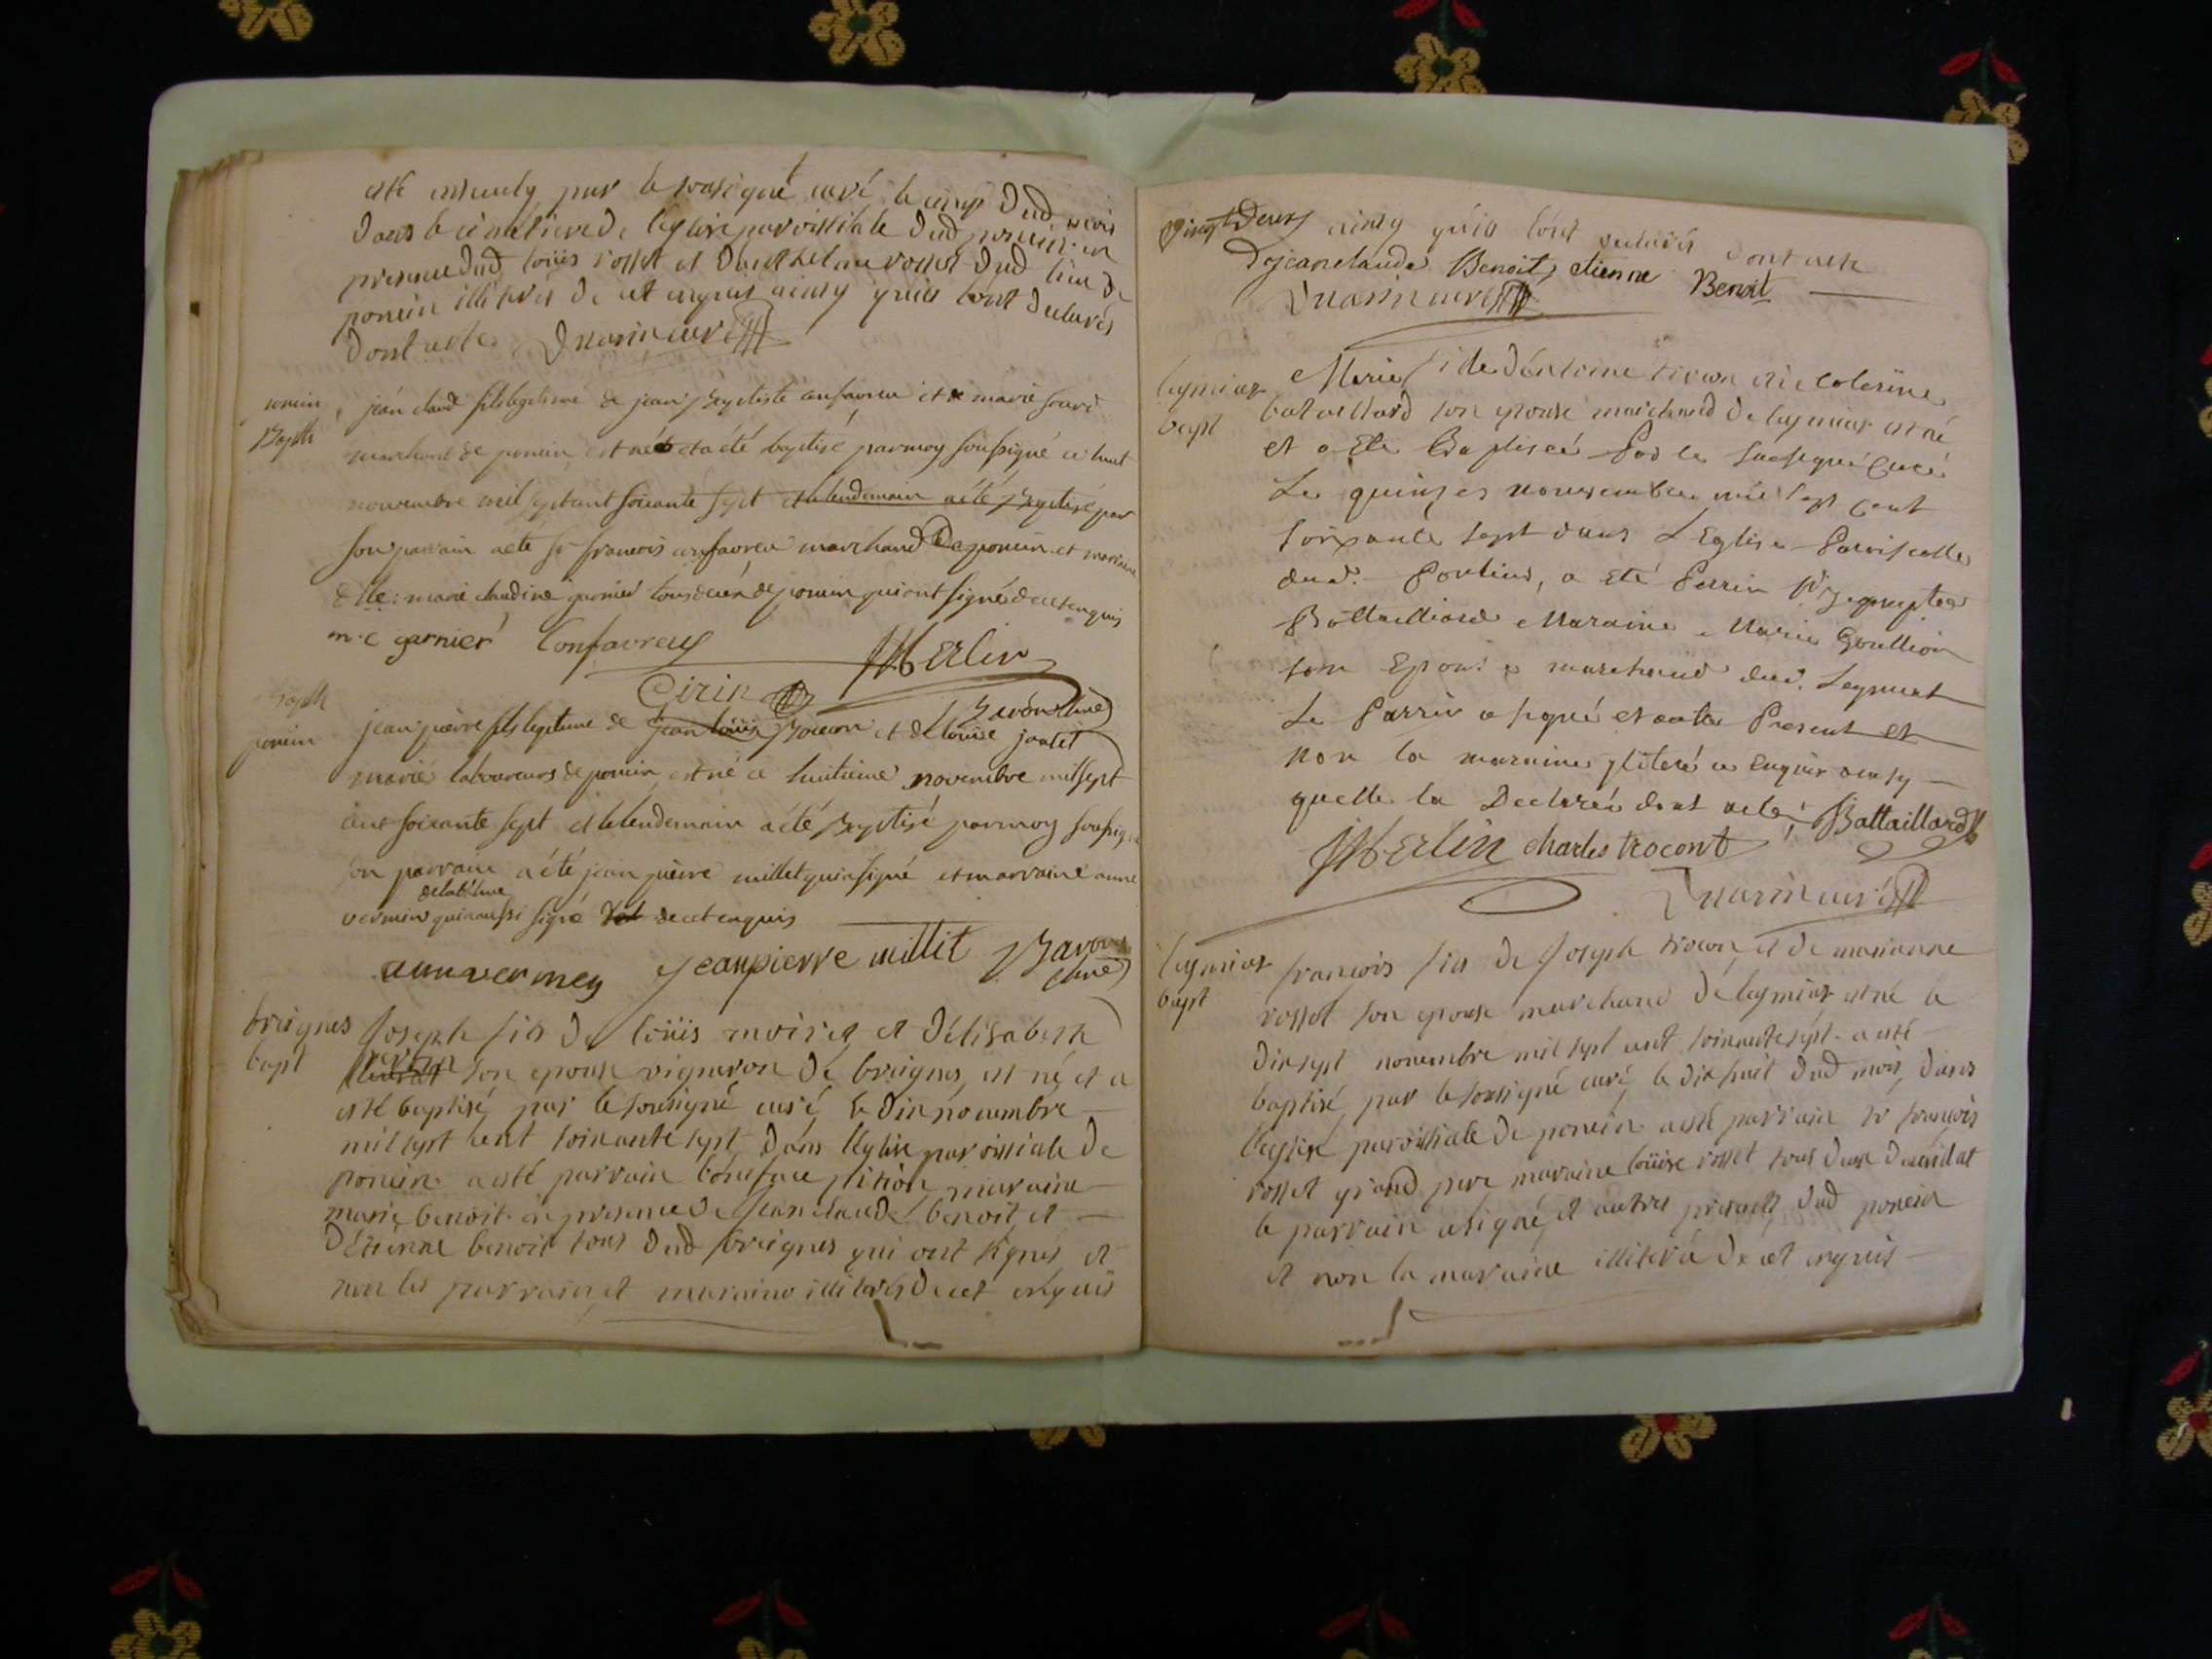 esté ensevely par le sousigné curé le cinq dud mois
dans le cimetiere de l'eglise paroissiale dud poncin en
presence dud loüis rosset et d'anthelme rosset dud lieu de
poncin illiterés de ce enquis ainsy qu'ils l'ont declarés
dont acte Duarin curé
poncin
Bapth
jean claude fils legitime de jean Baptiste confavreu et de marie
marchant de poncin, est né et a été baptisé par moy soussigné ce huit
novembre mil sept cent soixante sept et le lendemain a été Baptisé par
son parrain a eté sr francois confavreu marchand De poncin et maraine
dlle: marie claudine garnier tous deux de poncin qui ont signé de ce enquis
m. c garnier Confavreux JMerlin
Girin
Bapth
poncin
jean pierre fils legitime de jean loüis Bocon et de loüise jantet
marié laboureurs de poncin, est né ce huitieme novembre mil sept
cent soixante sept et le lendemain a été Baptisé par moy soussigné
son parrain a été jean pierre millet qui a signé et marraine anne
vermin qui a aussi signé de ce enquis
anne vermey Jean pierre millit Bavoux
breignes
bapt
Joseph fils de loüis moiret et d'elisabeth
son epouse vigneron de breignes, est né, et a
esté baptisé par le sousigné curé le dix novembre
mil sept cent soixante sept dans l'eglise paroissiale de
poncin a esté parrain boniface maraine
marie benoit en presence de Jean claude benoit et
d'etienne benoit tous dud breignes qui ont signés et
non les parrain et maraine illiterés de ce enquis
Vingt Deux ainsy qu'ils l'ont declarés dont acte
jean claude Benoit etienne Benoit
Duarin curé
leymiat
bapt
Marie fille d'antoine trocon et de
bataillard son epouse marchand de leymiat est né
et a Ete Baptisée Par le Soussigné Curé
Le quinze novembre mil sept cent
soixante sept dans L'Eglise Paroissialle
dud. Poncins, a Eté Parrin
Battailliard Maraine Marie Goullion
son Epouse marchand dud. Leymiat
Le Parrin a signé et autre Present et
non la maraine de ce Enquis ainsy
quelle la Declarée dont acte Battaillard
JMerlin charles trocont
Duarin curé
leymiat
bapt
françois fils de Joseph trocon, et de marianne
rosset son epouse marchand de leymiat est né le
dix sept novembre mil sept cent soixante sept a esté
baptisé par le sousigné curé, le dix huit dud mois, dans
l'eglise paroissiale de poncin a esté parrain sr françois
rosset grand pere maraine loüise rosset tous deux
le parrain a signé, et autres presents dud poncin
et non la maraine illiterée de ce enquis